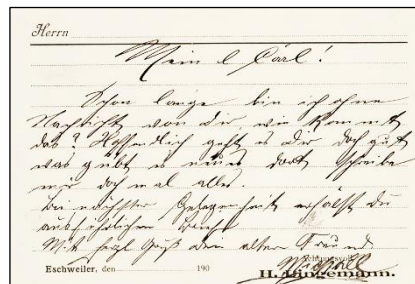 Herrn
Mein l Carl!
Schon lange bin ich ohne
Nachricht von dir wie kommt
das? Hoffentlich geht es dir doch gut
was gibt es neues dort schreibe
mir doch mal alles.
Bei nächster Gelegenheit erhälst du
ausführlichen Brief
Mit herzl Gruß dein alter Freund
Eschweiler, den 190
H. Wingemann.